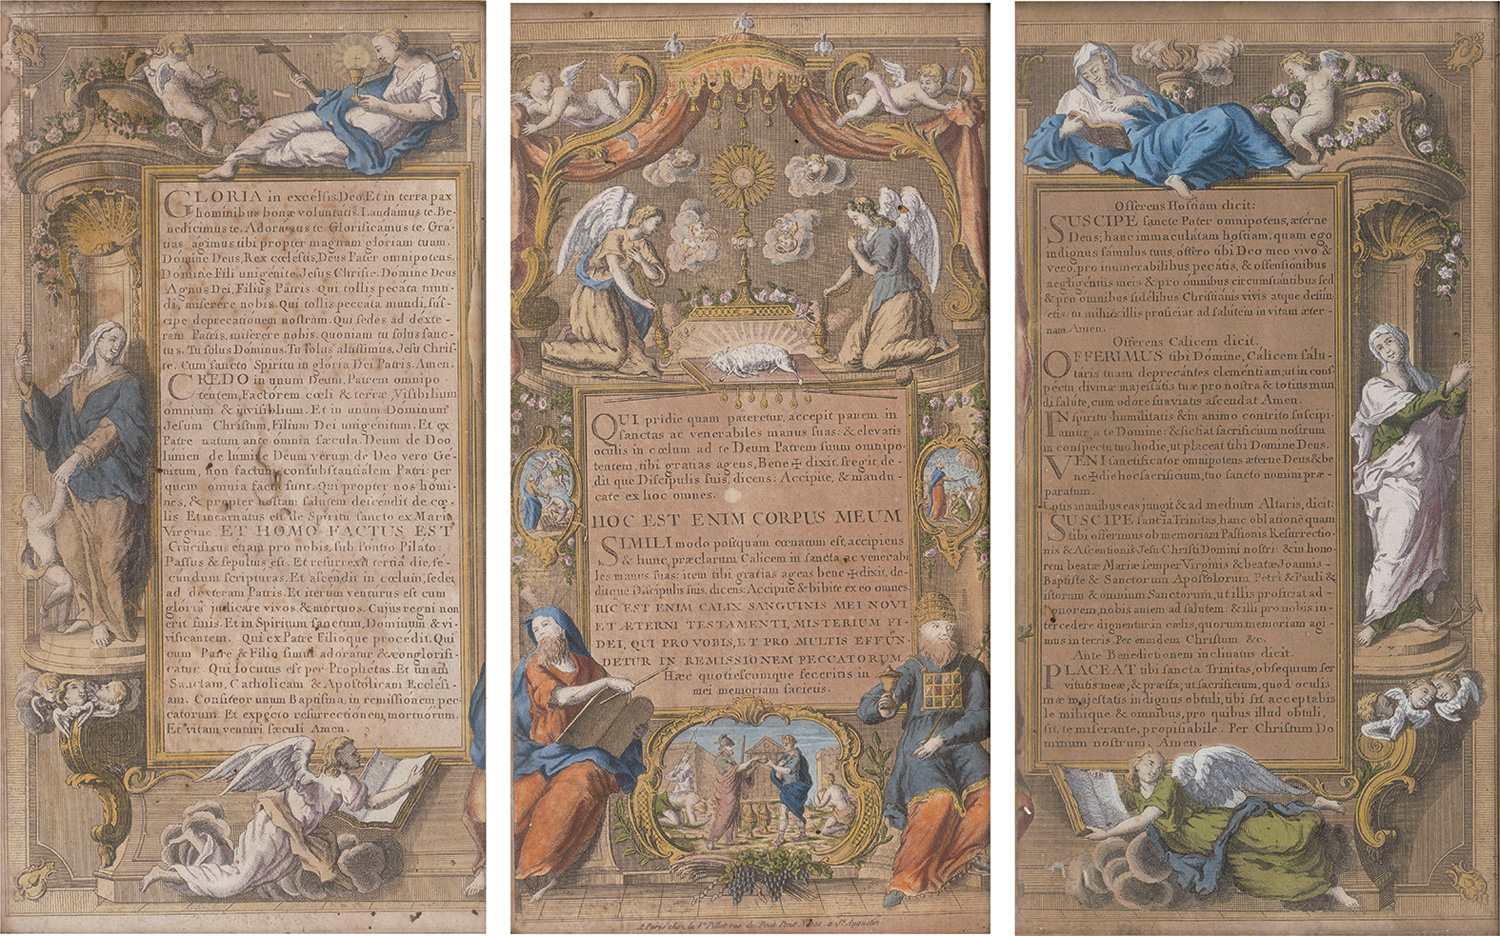 GLORIA in excélsis Deo. Et in terra pax
hominibus bonæ voluntatis. Laudamus te. Be-
nedicimus te. Adoramus te Glorificamus te. Gra-
tias agimus tibi propter magnam gloriam tuam.
Domine Deus, Rex cœlestis, Deus Pater omnipotens.
Domine Fili unigenite. Jesus Christe. Domine Deus
Agnus Dei, Filius Patris. Qui tollis pecáta mun-
di, miserére nobis. Qui tollis peccáta mundi, sus-
cipe deprecatiónem nostram. Qui sedes ad déxte-
ram Patris, miserere nobis. quoniam tu solus sanc-
tus. Tu solus Dominus. Tu solus altissimus, Jesu Chris-
te. Cum sancto Spiritu in gloria Dei Patris. Amen.
CREDO in unum Deum, Patrem omnipo-
tentem, Factorem cœli & terræ, Visibilium
omnium & invisiblium. Et in unum Dominum
Jesum Christum, Filium Dei unigenitum. Et ex
Patre natum ante omnia sæcula. Deum de Deo
lumen de lumine Deum verum de Deo vero Gé-
nitum, non factum, consubstantialem Patri: per
quem omnia facta sunt. Qui propter nos hómi-
nes, & propter nostam salutem descendit de cœ-
lis Et incarnatus est de Spiritu sancto ex Maria
Virgine. ET HOMO FACTUS EST
Crucifixus etiam pro nobis, sub Pontio Pilato:
Passus & sepulus est. Et resurrexit tertia die, se-
cundum scripturas. Et ascendit in cœlum, sedet
ad dexteram Patris. Et iterum venturus est cum
gloria judicare vivos & mortuos. Cujus regni non
erit finis. Et in Spiritum sanctum, Dominum & vi-
vificantem. Qui ex Patre Filioque procedit. Qui
cum Patre & Filio simul adoratur & conglorifi-
catur. Qui locutus est per Prophetas. Et unam
Sanctam, Catholicam & Apostolicam Ecclesi-
am. Confiteor unum Baptisma, in remissionem pec-
catorum. Et expecto resurrectionem mortuorum.
Et vitam venturi sæculi Amen.
QUI pridie quam pateretur, accepit panem in
sanctas ac venerabiles manus suas: & elevatis
oculis in cœlum ad te Deum Patrem suum omnipo-
tentem, tibi gratias agens, Bene ✠ dixit, fregit, de-
dit que Discipulis suis, dicens: Accipite, & mandu-
cate ex hoc omnes.
HOC EST ENIM CORPUS MEUM
SIMILI modo postquam cœnatum est, accipiens
& hunc, præclarum Calicem in sancta ac venerabi
les manus suas: item tibi gratias agens bene ✠ dixit, de-
ditque Discipulis suis, dicens: Accipite & bibite ex eo omnes.
HIC EST ENIM CALIX SANGUINIS MEI NOVI
ET ÆTERNI TESTAMENTI, MISTERIUM FI-
DEI, QUI PRO VOBIS, ET PRO MULTIS EFFUN-
DETUR IN REMISSIONEM PECCATORUM
Hæc quotiescumque feceritis in
mei memoriam facietis.
A Paris chez la Ve Pillot rue du Petit Pont N. 202. a St. Augustin
Offerens Hostiam dicit:
SUSCIPE sancte Pater omnipotens, ætérne
Deus; hanc immaculátam hostiam, quam ego
indignus fámulus tuus, offero tibi Deo meo vivo &
vero, pro inumerabilibus pecátis, & offensionibus
negligentiis meis & pro omnibus circumstantibus sed
& pro omnibus fidélibus Christianis vivis atque defún-
ctis: ut mihi & illis proficiat ad salútem in vitam æter-
nam Amen.
Offerens Calicem dicit.
OFFERIMUS tibi Dómine, Cálicem sálu-
taris tuam deprecántes clementiam; ut in cons-
péctu divinæ majestátis tuæ pro nostra & totius mun
di salute, cum odore suaviatis ascendat Amen.
IN spiritu humilitatis & in animo contrito suscipi-
amur, a te Domine: & sic fiat sacrificium nostrum
in conspectu tuo hodie, ut placeat tibi Domine Deus.
VENI sanctificator omnipotens æterne Deus & be
ne ✠ die hoc sacrificium, tuo sancto nomini præ-
paratum.
Lotis manibus eas jungit & ad medium Altaris, dicit:
SUSCIPE sancta Trinitas, hanc oblationé quam
tibi offerimus ob memoriam Passionis Resurrectio-
nis & Ascentionis Jesu Christi Domini nostri: & in hono
rem beatæ Mariæ semper Virginis & beatæ Joannis
Baptiste & Sanctorum Apostolorum Petri & Pauli &
istorum & omnium Sanctorum, ut illis proficiat ad
honorem, nobis autem ad salutem: & illi pro nobis in-
tercedere dignentur in cælis, quorum memoriam agi-
mus in terris. Per eumdem Christum &c.
Ante Benedictionem inclinatus dicit.
PLACEAT tibi sancta Trinitas, obsequium ser
vitutis meæ, & præsta; ut sacrificium, quod oculis
tuæ majestatis indignus obtuli, tibi sit acceptabis
le mihique & omnibus, pro quibus illud obtuli,
sit, te miserante, propisiabile. Per Christum Do
minum nostrum. Amen.